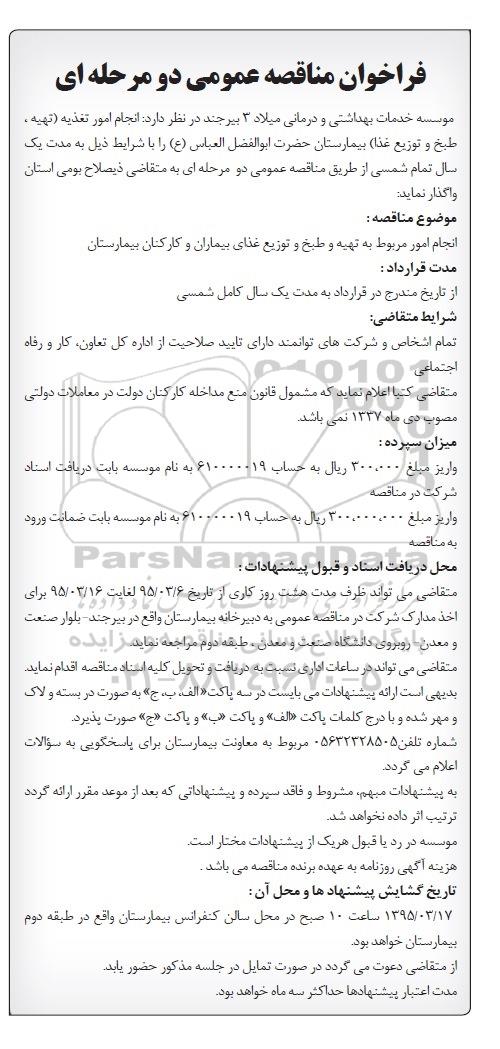 فراخوان مناقصه عمومی دو مرحله ای
موسسه خدمات بهداشتی و درمانی میلاد ۳ بیرجند در نظر دارد: انجام امور تغذیه (تهیه ،
طبخ و توزیع غذا) بیمارستان حضرت ابوالفضل العباس (ع) را با شرایط ذیل به مدت یک
سال تمام شمسی از طریق مناقصه عمومی دو مرحله ای به متقاضی ذیصلاح بومی استان
واگذار نماید:
موضوع مناقصه :
انجام امور مربوط به تهیه و طبخ و توزیع غذای بیماران و کارکنان بیمارستان
مدت قرارداد :
از تاریخ مندرج در قرارداد به مدت یک سال کامل شمسی
شرایط متقاضی:
تمام اشخاص و شرکت های توانمند دارای تایید صلاحیت از اداره کل تعاون، کار و رفاه
اجتماعی
متقاضی کتبا اعلام نماید که مشمول قانون منع مداخله کارکنان دولت در معاملات دولتی
مصوب دی ماه ۱۳۳۷ نمی باشد.
میزان سپرده :
واریز مبلغ ۳۰۰،۰۰۰ ریال به حساب ۶۱۰۰۰۰۰۱۹ به نام موسسه بابت دریافت اسناد
شرکت در مناقصه
واریز مبلغ ۳۰۰،۰۰۰،۰۰۰ ریال به حساب ۶۱۰۰۰۰۰۱۹ به نام موسسه بابت ضمانت ورود
به مناقصه
ParsNamadData
محل دریافت اسناد و قبول پیشنهادات :
متقاضی می تواند ظرف مدت هشت روز کاری از تاریخ ۹۵/۰۳/۶ لغایت ۹۵/۰۳/۱۶ برای
اخذ مدارک شرکت در مناقصه عمومی به دبیرخانه بیمارستان واقع در بیرجند– بلوار صنعت
و معدن– روبروی دانشگاه صنعت و معدن ، طبقه دوم مراجعه نماید.
متقاضی می تواند در ساعات اداری نسبت به دریافت و تحویل کلیه اسناد مناقصه اقدام نماید.
۰۲۱-۸۸۳۴۹۶۷۰-۵
بدیهی است ارائه پیشنهادات می بایست در سه پاکت« الف، ب، ج» به صورت در بسته و لاک
و مهر شده و با درج کلمات پاکت «الف» و پاکت «ب» و پاکت «ج» صورت پذیرد.
شماره تلفن۰۵۶۳۲۳۲۸۵۰۵ مربوط به معاونت بیمارستان برای پاسخگویی به سؤالات
اعلام می گردد.
به پیشنهادات مبهم، مشروط و فاقد سپرده و پیشنهاداتی که بعد از موعد مقرر ارائه گردد
ترتیب اثر داده نخواهد شد.
موسسه در رد یا قبول هریک از پیشنهادات مختار است.
هزینه آگهی روزنامه به عهده برنده مناقصه می باشد .
تاریخ گشایش پیشنهاد ها و محل آن :
۱۳۹۵/۰۳/۱۷ ساعت ۱۰ صبح در محل سالن کنفرانس بیمارستان واقع در طبقه دوم
بیمارستان خواهد بود.
از متقاضی دعوت می گردد در صورت تمایل در جلسه مذکور حضور یابد.
مدت اعتبار پیشنهادها حداکثر سه ماه خواهد بود.